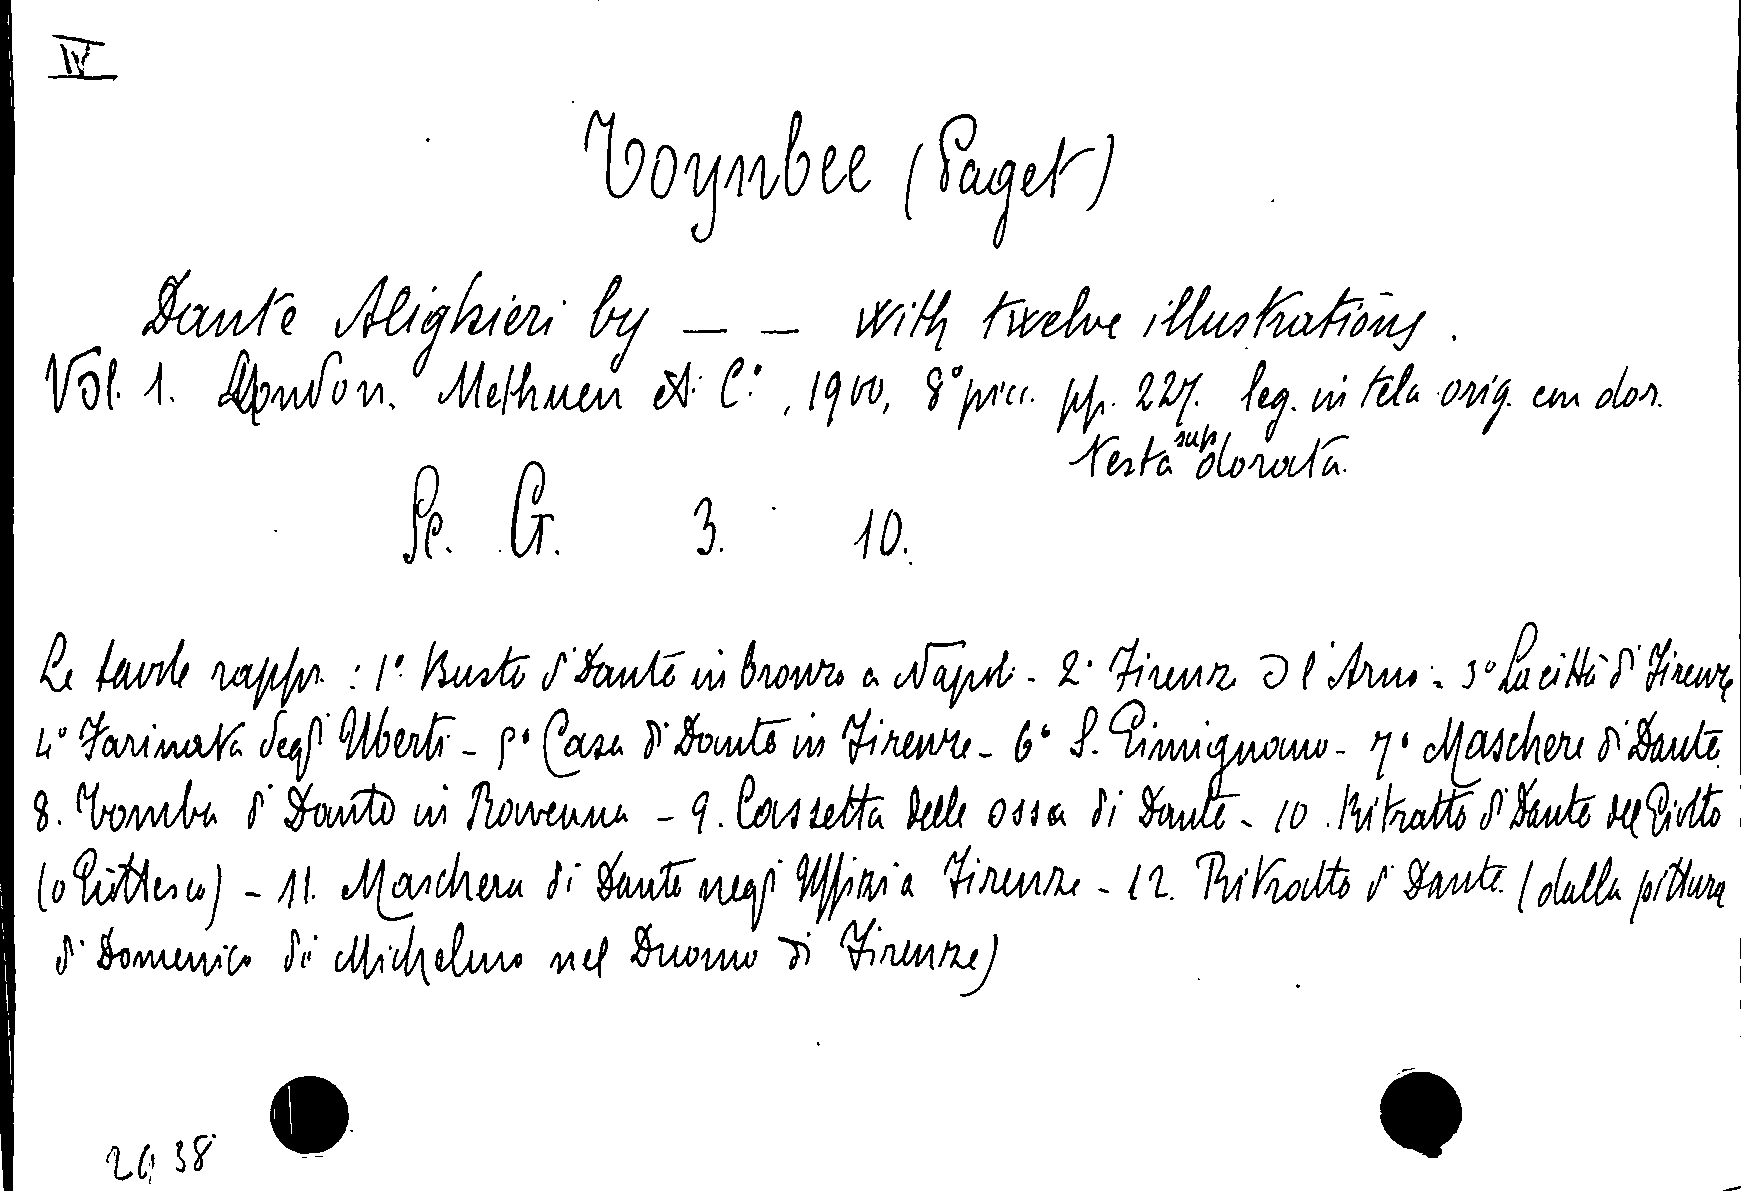 IV
Toynbee (Paget)
Dante Alighieri by — — with twelve illustrations.
Vol. 1. London. Methuen et C.°, 1900, 8° picc. pp. 227. leg. in tela orig. con dor.
testa sup dorata.
Pe. G. 3. 10.
Le tavole rappr. : 1° Busto di Dante in bronzo a Napoli - 2° Firenze e l'Arno - 3° La città di Firenze
4° Farinata degli Uberti - 5° Casa di Dante in Firenze - 6° S. Gimignano - 7° Maschere di Dante
8. Tomba di Dante in Ravenna - 9. Cassetta delle ossa di Dante - 10. Ritratto di Dante del Giotto
(o Giottesco) - 11. Maschera di Dante negli Uffizi a Firenze - 12. Ritratto di Dante (dalla pittura
di Domenico di Michelino nel Duomo di Firenze)
38